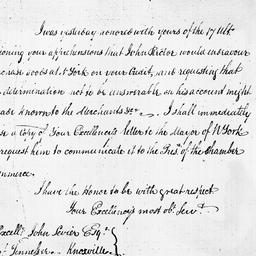 I was yesterday honored with yours of the 17 Ult.
ioning your apprehensions that John Rector would endeavour
chase goods at N York on your Credit, and requesting that
determination not to be answerable on his account might
ade known to the Merchants &c. I shall immediately
se a Copy of Your Excellencys letter to the Mayor of N York
request him to communicate it to the Prest. of the Chamber
mmerce.
I have the Honor to be with great respect
Your Excellencys most obt. Servt.
xcelly. John Sevier Esqr.
Tennessee Knoxville